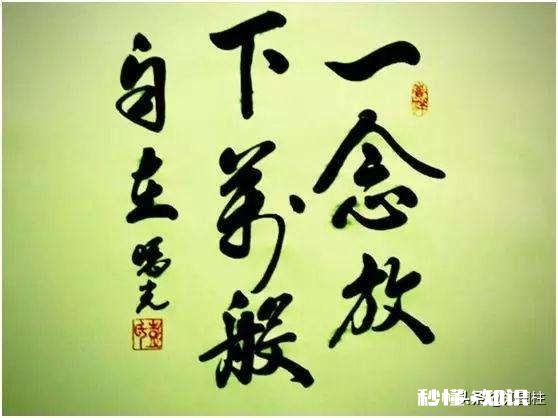 一念放
下萬般
自在
秒懂·知识